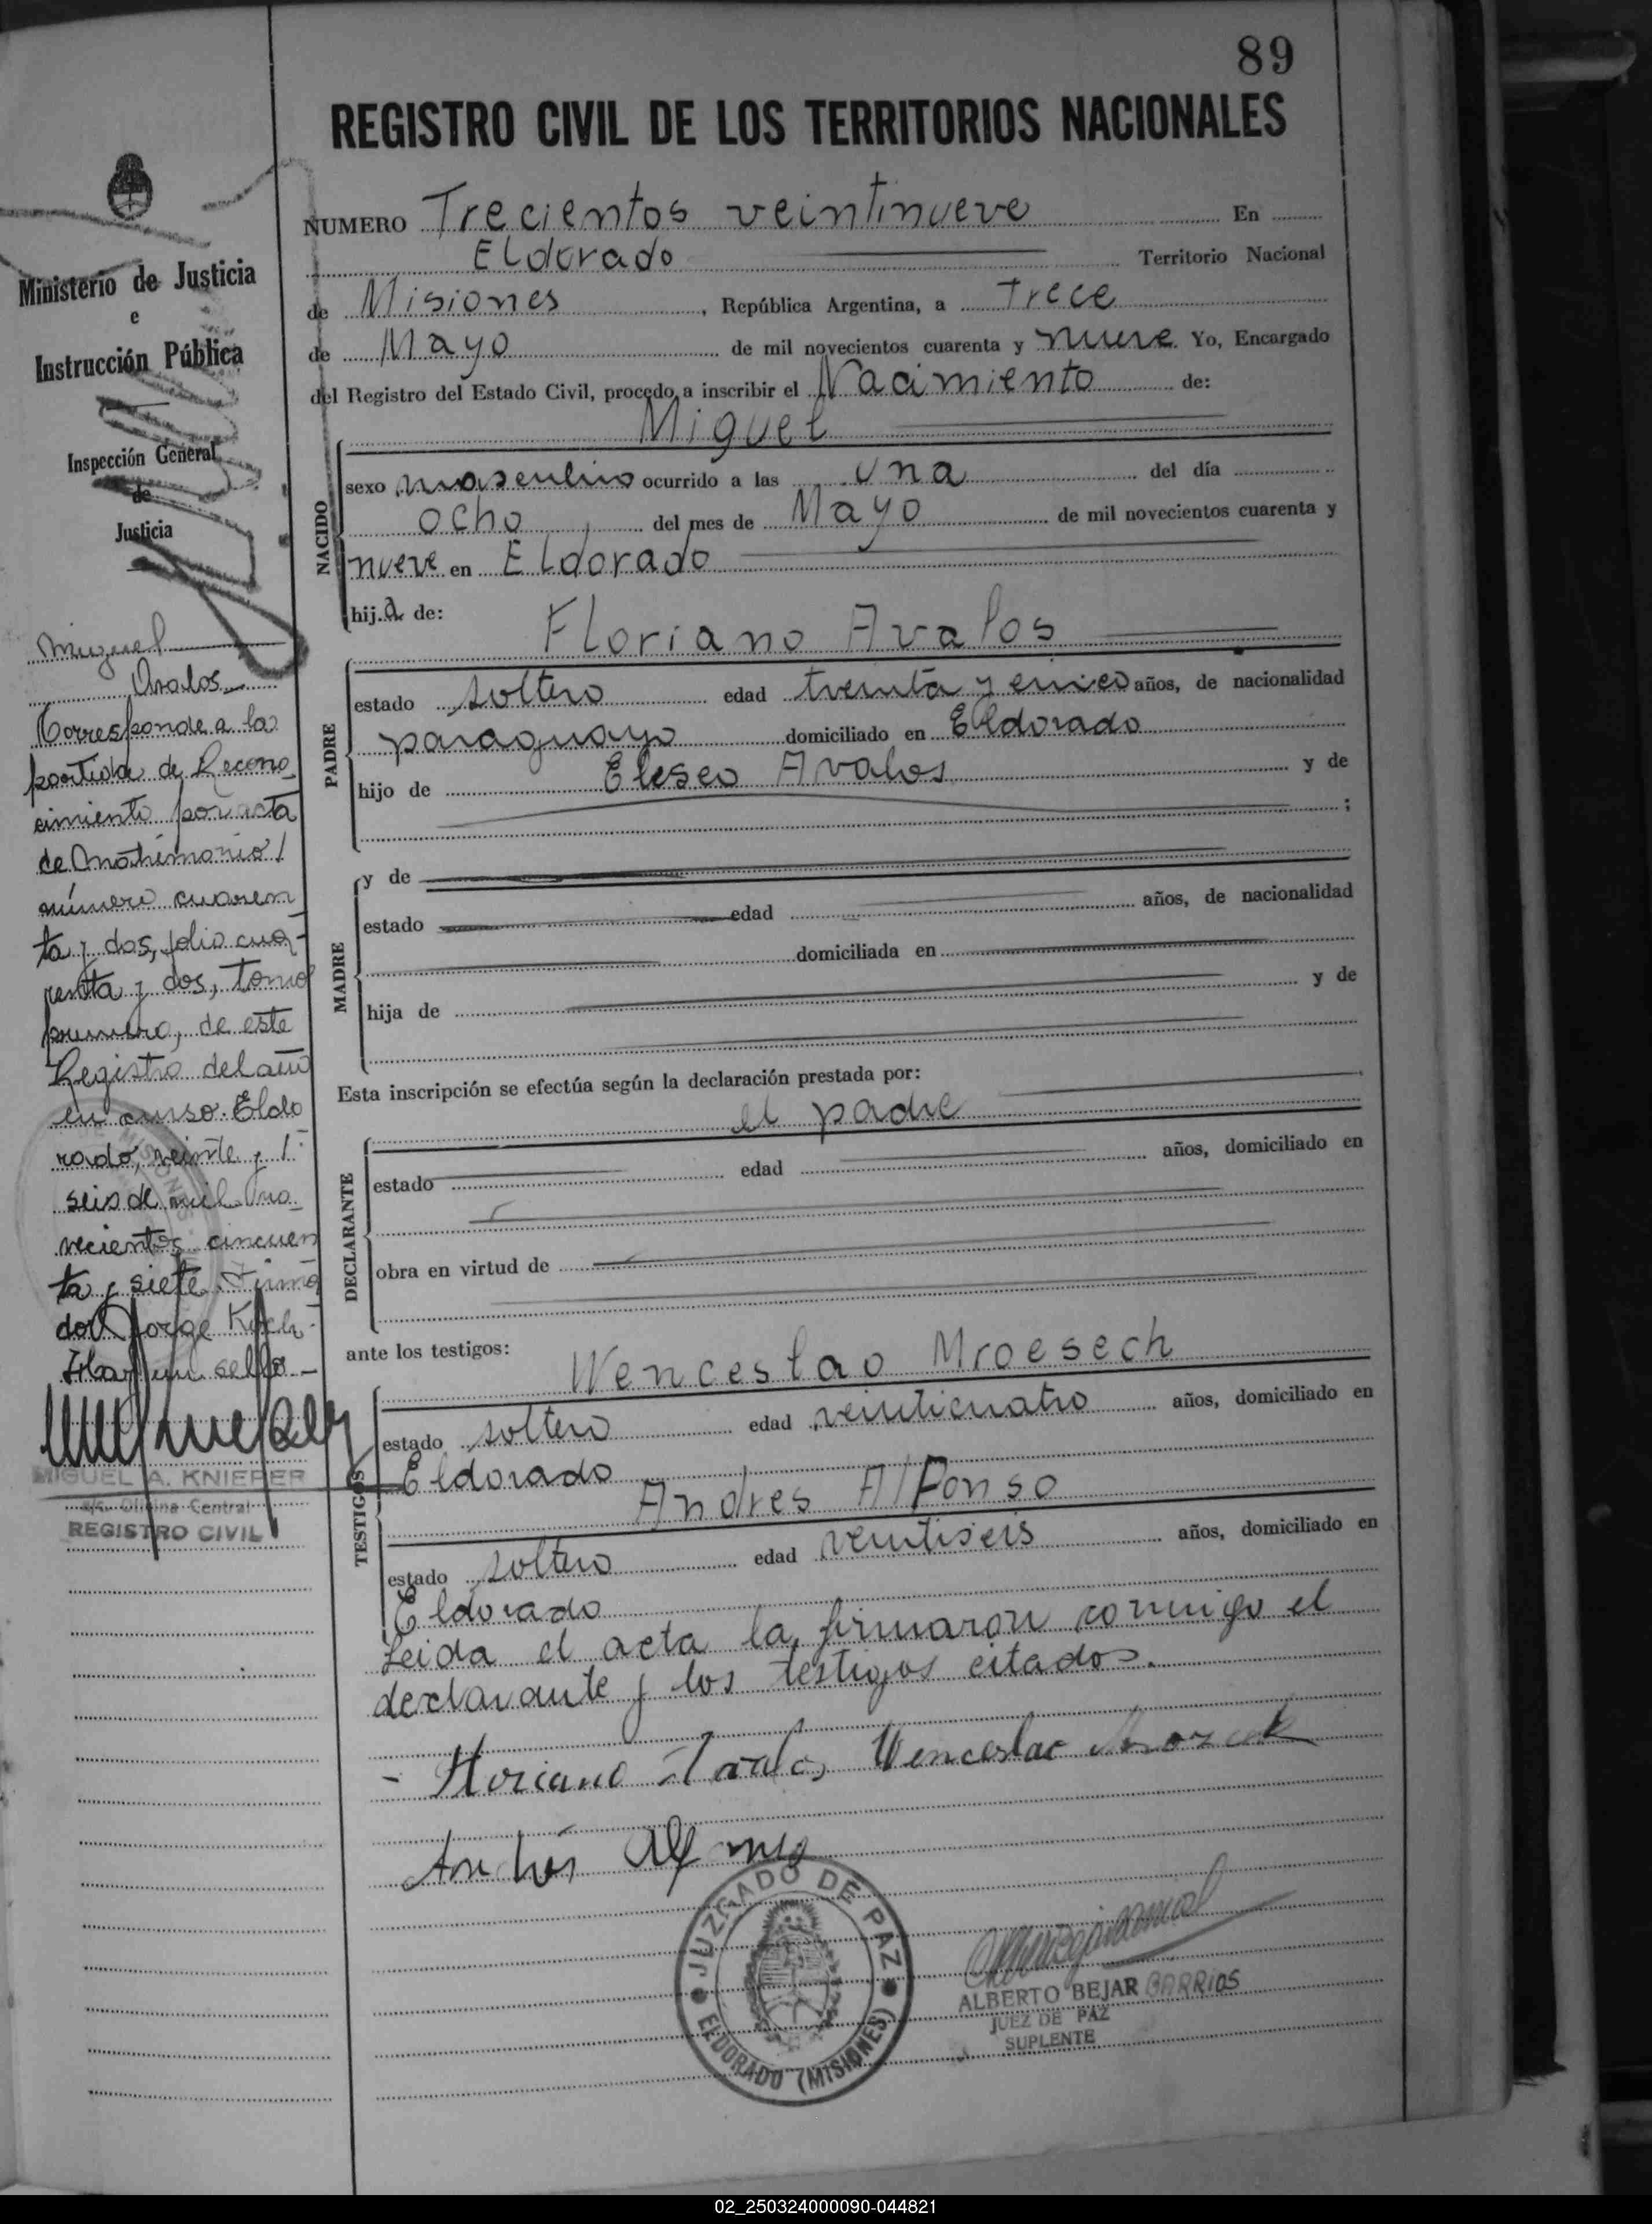 89
REGISTRO CIVIL DE LOS TERRITORIOS NACIONALES
NUMERO Trecientos veintinueve En
Eldorado Territorio Nacional
de Misiones, República Argentina, a Trece
de Mayo de mil novecientos cuarenta y nueve Yo, Encargado
del Registro del Estado Civil, procedo a inscribir el Nacimiento de:
Miguel
NACIDO
sexo masculino ocurrido a las una del día
ocho del mes de Mayo de mil novecientos cuarenta y
nueve en Eldorado
hij.a de:
Floriano Avalos
PADRE
estado soltero edad treinta y cinco años, de nacionalidad
paraguayo domiciliado en Eldorado
hijo de Eleseo Avalos y de
;
MADRE
y de
estado edad años, de nacionalidad
domiciliada en
hija de y de
Esta inscripción se efectúa según la declaración prestada por:
el padre
DECLARANTE
estado edad años, domiciliado en
obra en virtud de
ante los testigos:
Wenceslao Mroesech
TESTIGOS
estado soltero edad veinticuatro años, domiciliado en
Eldorado
Andres Alfonso
estado soltero edad veintiseis años, domiciliado en
Eldorado
Leida el acta la firmaron conmigo el
declarante y los testigos citados.
- Floriano Avalos Wenceslao
Andrés Alfonso
JUZGADO DE PAZ
ELDORADO (MISIONES)
ALBERTO BEJAR BARRIOS
JUEZ DE PAZ
SUPLENTE
Ministerio de Justicia
e
Instrucción Pública
Inspección General
de
Justicia
Miguel
Avalos
Corresponde a la
partida de Recono
cimiento por acta
de Matrimonio /
número cuaren
ta y dos, folio cua-
renta y dos, Tomo
primero, de este
Registro del año
en curso. Eldo
rado, veinte y /
seis de mil no
vecientos cincuen
ta y siete. Firma
do: Jorge Koch-
Hay un sello.
MIGUEL A. KNIEPER
a/c. Oficina Central
REGISTRO CIVIL
02_250324000090-044821